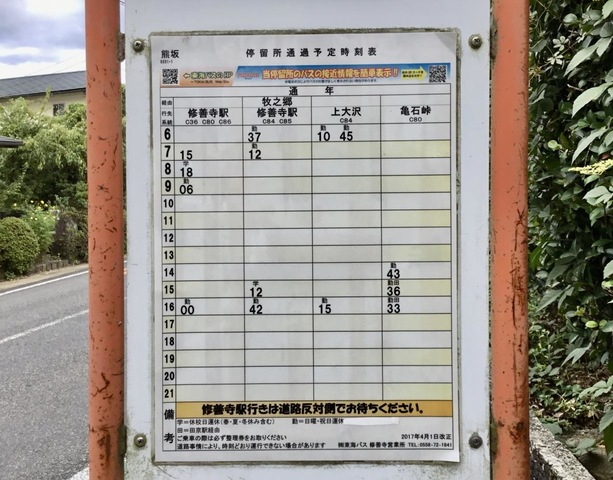 熊坂
停留所通過予定時刻表
←東海バスのHP 当停留所のバスの接近情報を簡単表示!!
通年
経由 牧之郷
行先 修善寺駅 修善寺駅 上大沢 亀石峠
系統 C36 C80 C86 C84 C85 C84 C80
6 勤37 勤10 勤45
7 15 勤12
8 学18
9 勤06
10
11
12
13
14 勤43
15 学12 勤田36
16 勤00 勤42 勤15 勤田33
17
18
19
20
21
備考 修善寺駅行きは道路反対側でお待ちください。
学=休校日運休(春・夏・冬休み含む) 勤=日曜・祝日運休
田=田京駅経由
ご乗車の際は必ず整理券をお取りください 2017年4月1日改正
道路事情により、時刻どおり運行できない場合があります ㈱東海バス 修善寺営業所 TEL:0558-72-1841